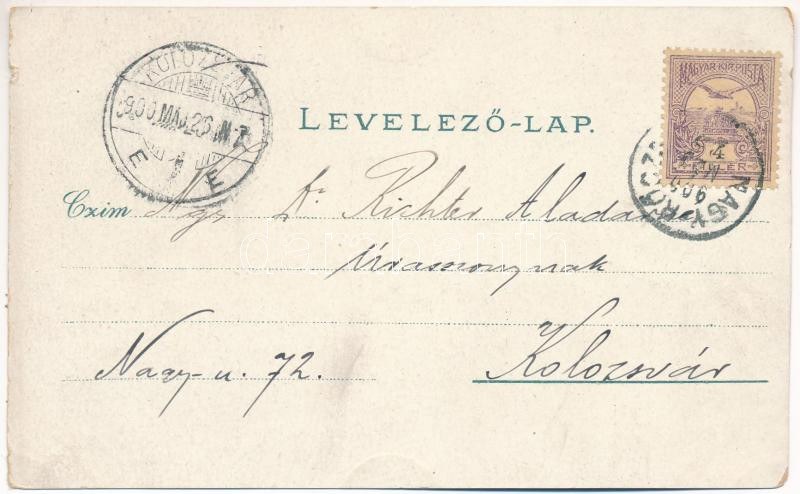 KOLOZSVÁR
900 MÁJ. 26
MAGYAR KIR. POSTA
LEVELEZŐ-LAP.
4
FILLÉR
Czim Ngs Dr Richter Aladárné
Úrasszonynak
Nagy-u. 72.
Kolozsvár